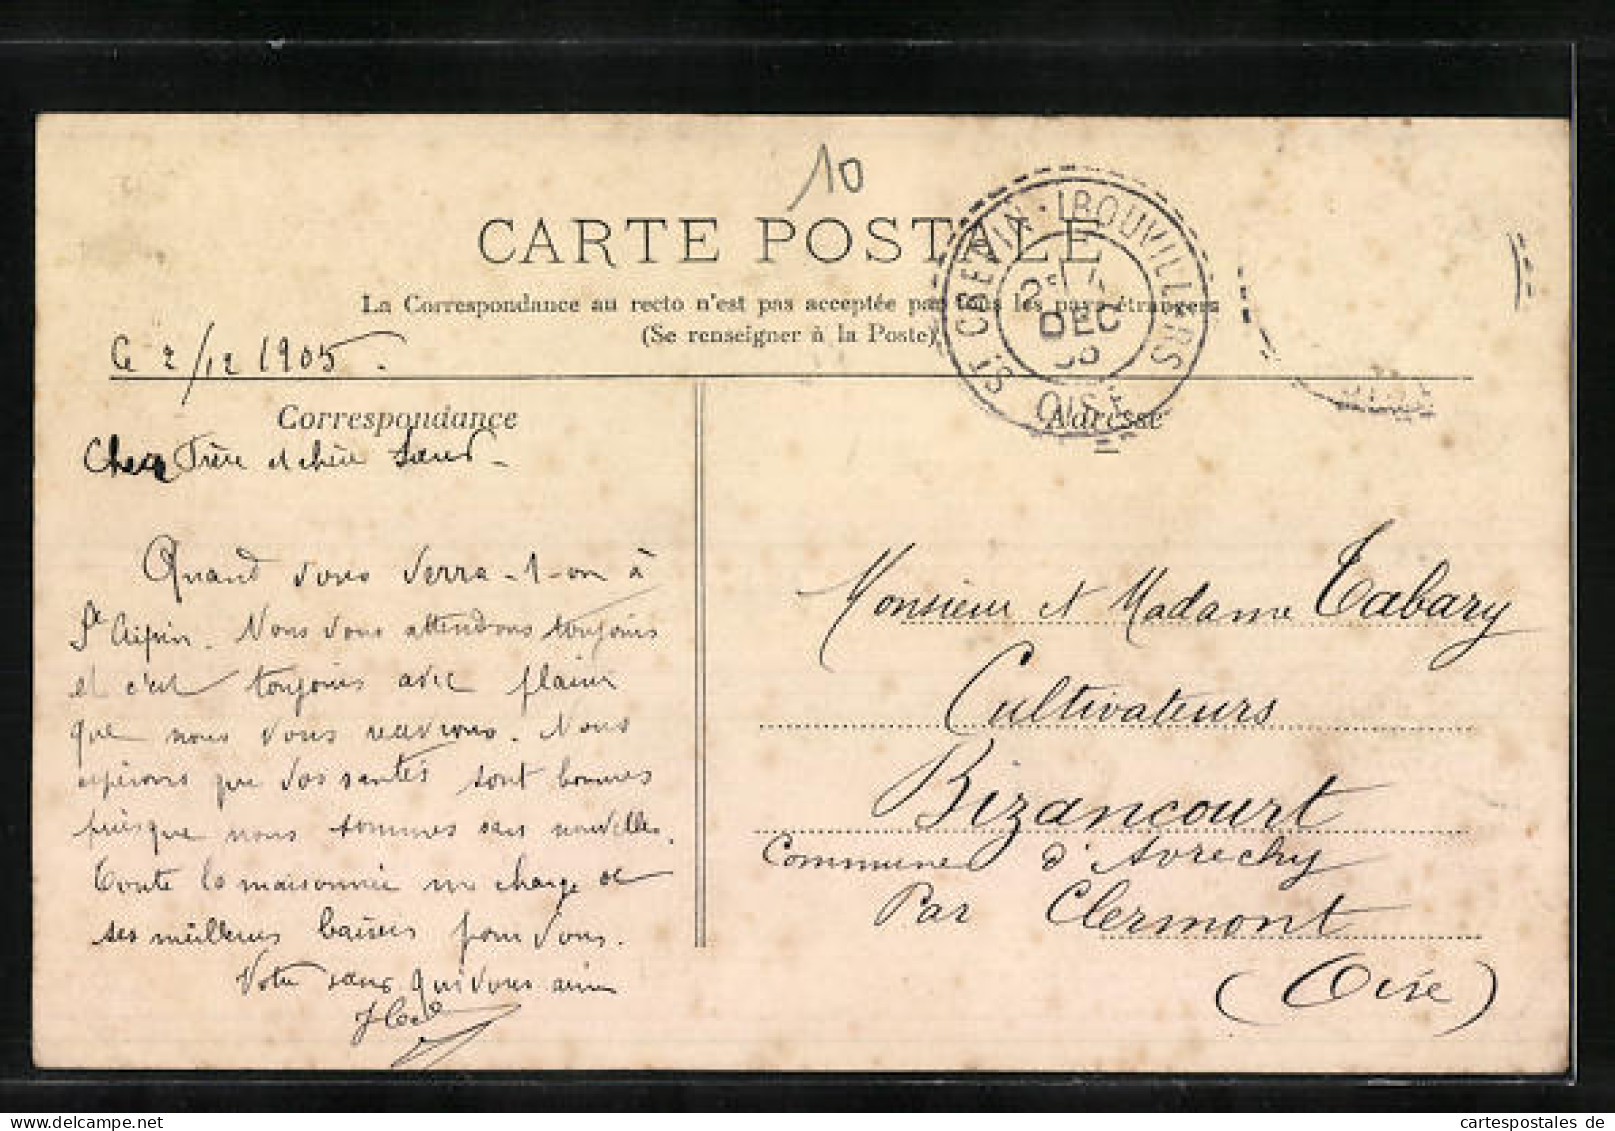 10
CARTE POSTALE
La Correspondance au recto n'est pas acceptée par tous les pays étrangers
(Se renseigner à la Poste)
ST CREPIN-IBOUVILLERS
DEC
OISE
Le 2/12 1905.
Correspondance
Adresse
Cher Frère et chère Sœur -
Quand vous verra-t-on à
St Crépin. Nous vous attendons toujours
et c'est toujours avec plaisir
que nous vous recevrons. Nous
espérons que vos santés sont bonnes
puisque nous sommes sans nouvelles.
Toute la maisonnée me charge de
ses meilleurs baisers pour vous.
Votre sœur qui vous aime
Monsieur et Madame Tabary
Cultivateurs
Bizancourt
Commune d'Avrechy
Par Clermont
(Oise)
cartespostales de